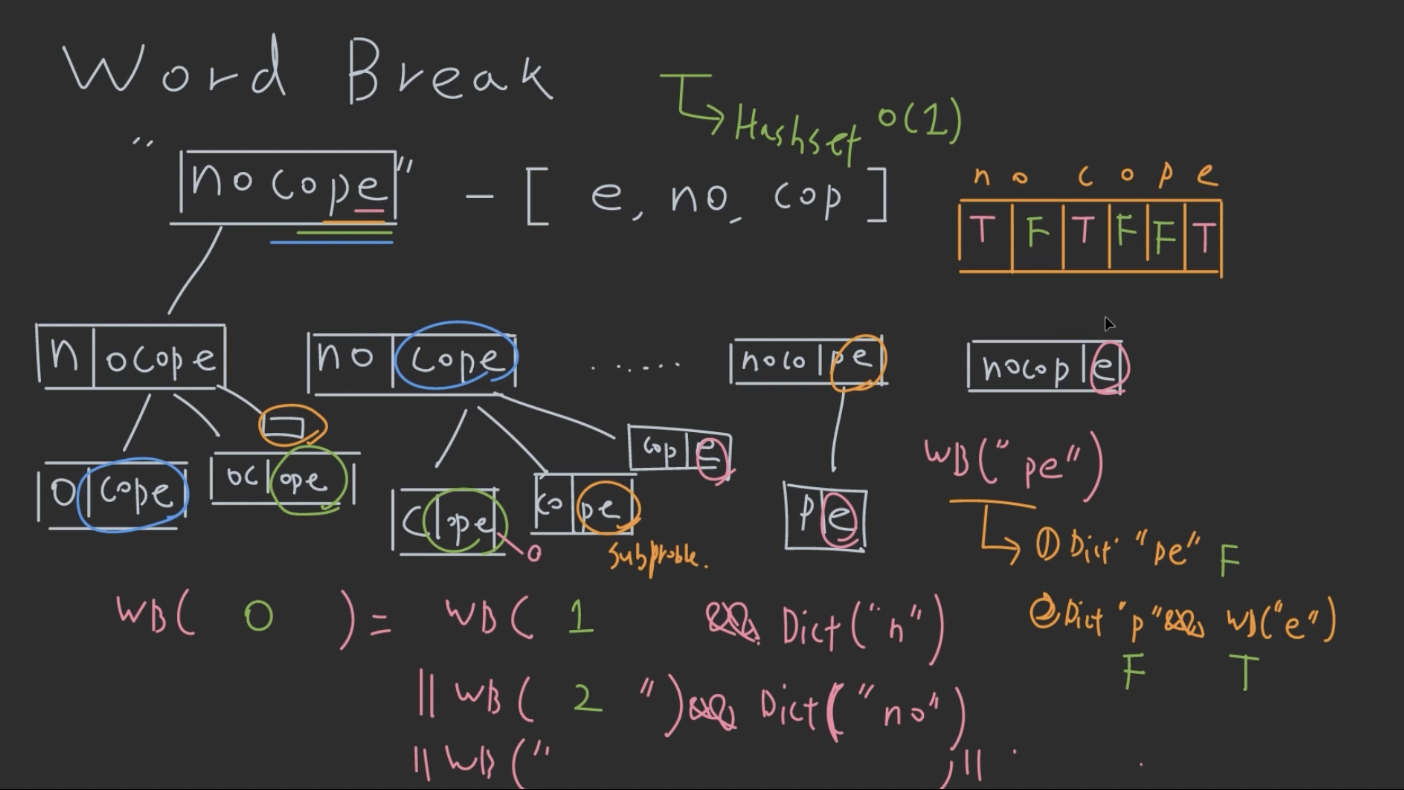 Word Break
Hashset O(1)
"nocope" - [ e, no, cop ]
n o c o p e
T F T F F T
n|ocope
no|cope
......
noco|pe
nocop|e
o|cope
oc|ope
c|ope
o
co|pe
cop|e
p|e
Subproble.
WB("pe")
① Dict "pe" F
② Dict "p" && WB("e")
F T
WB( 0 ) = WB( 1 && Dict("n")
|| WB( 2 ") && Dict("no")
|| WB(" ) ||